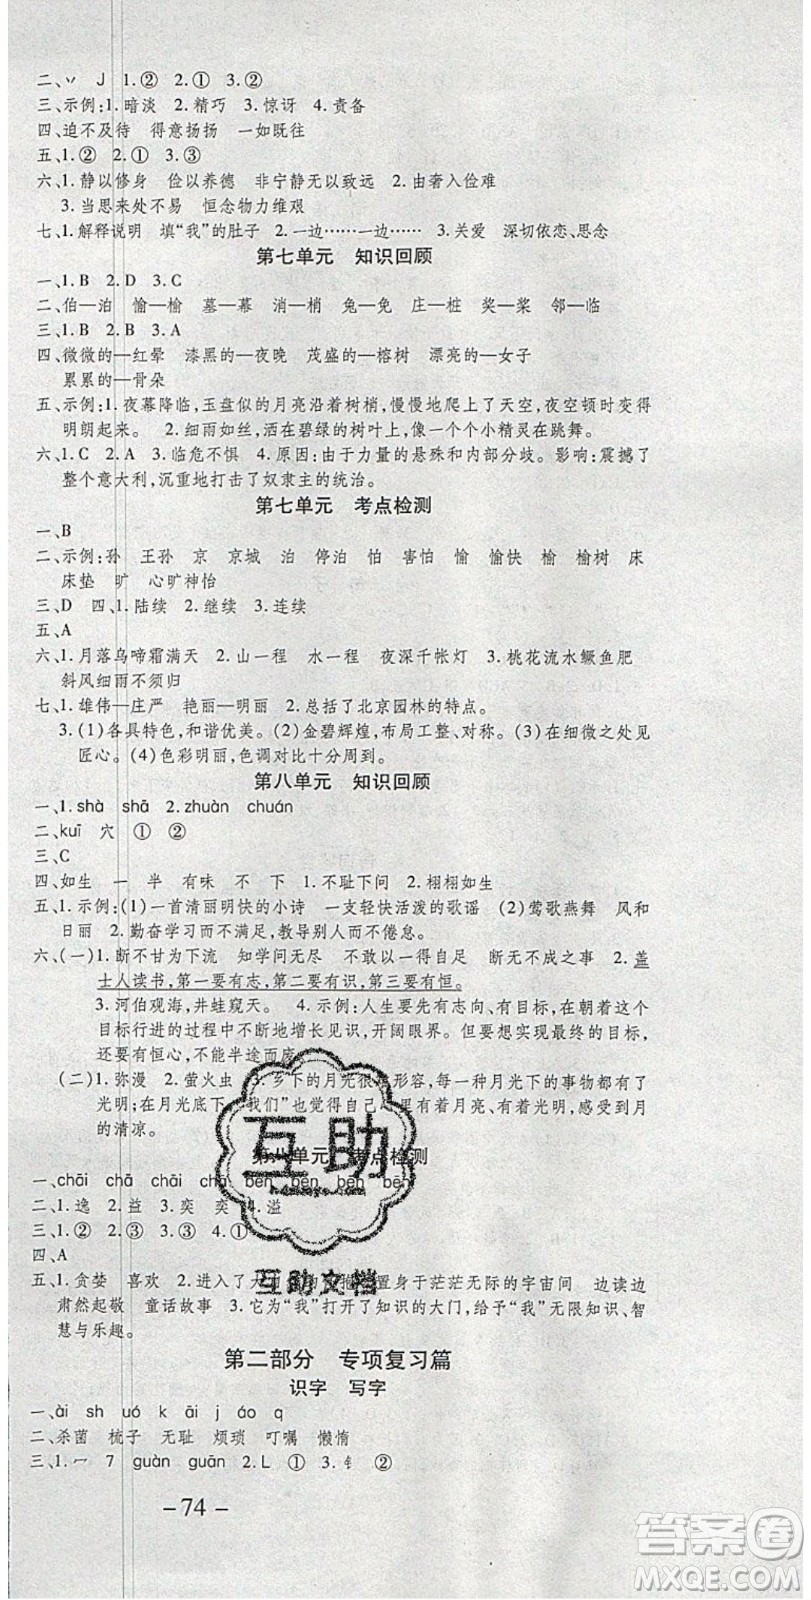 二、丷　J　1.②　2.①　3.②
三、示例:1.暗淡　2.精巧　3.惊讶　4.责备
四、迫不及待　得意扬扬　一如既往
五、1.②　2.①　3.③
六、1.静以修身　俭以养德　非宁静无以致远　2.由奢入俭难
3.当思来处不易　恒念物力维艰
七、1.解释说明　填“我”的肚子　2.一边……一边……　3.关爱　深切依恋、思念
第七单元　知识回顾
一、1.B　2.D　3.C
二、伯—泊　愉—榆　墓—幕　消—梢　兔—免　庄—桩　奖—桨　邻—临
三、1.B　2.B　3.A
四、微微的—红晕　漆黑的—夜晚　茂盛的—榕树　漂亮的—女子
累累的—骨朵
五、示例:1.夜幕降临,玉盘似的月亮沿着树梢,慢慢地爬上了天空,夜空顿时变得
明朗起来。　2.细雨如丝,洒在碧绿的树叶上,像一个个小精灵在跳舞。
六、1.C　2.A　3.临危不惧　4.原因:由于力量的悬殊和内部分歧。影响:震撼了
整个意大利,沉重地打击了奴隶主的统治。
第七单元　考点检测
一、B
二、示例:孙　王孙　京　京城　泊　停泊　怕　害怕　愉　愉快　榆　榆树　床
床垫　旷　心旷神怡
三、D　四、1.陆续　2.继续　3.连续
五、A
六、1.月落乌啼霜满天　2.山一程　水一程　夜深千帐灯　3.桃花流水鳜鱼肥
斜风细雨不须归
七、1.雄伟—庄严　艳丽—明丽　2.总括了北京园林的特点。
3.(1)各具特色,和谐优美。(2)金碧辉煌,布局工整、对称。(3)在细微之处见
匠心。(4)色彩明丽,色调对比十分周到。
第八单元　知识回顾
一、1.shà　shā　2.zhuàn　chuán
二、kuī　穴　①　②
三、C
四、如生　一　半　有味　不　下　1.不耻下问　2.栩栩如生
五、1.示例:(1)一首清丽明快的小诗　一支轻快活泼的歌谣　(2)莺歌燕舞　风和
日丽　2.勤奋学习而不满足,教导别人不倦怠。
六、(一)1.断不甘为下流　知学问无尽　不敢以一得自足　断无不成之事　2.盖
士人读书,第一要有志,第二要有识,第三要有恒。
3.河伯观海,井蛙窥天。　4.示例:人生要先有志向、有目标,在朝着这个
目标行进的过程中不断地增长见识,开阔眼界。要想实现这个目标,
还要有恒心,不能半途而废
(二)1.弥漫　2.萤火虫　3.乡下的月光很难形容,每一种月光下的事物都有
光明;在月光底下,“我们”也觉得自己心里有着月亮、有着光明,感受到月
的清凉。
第八单元　考点检测
一、chāi　chā　chāi　chā　bèn　bēn　bèn　bēn
二、1.逸　2.益　3.奕　奕　4.溢
三、1.②　2.②　3.③　4.①
四、A
五、1.贪婪　喜欢　2.进入了大 置身于茫茫无际的宇宙间　边读边
肃然起敬　童话故事　3.它为“我”打开了知识的大门,给予“我”无限知识、智
慧与乐趣。
第二部分　专项复习篇
识字　写字
一、ài　sh　uó　k　āi　j　áo　q
二、杀菌　梳子　无耻　烦琐　叮嘱　懒惰
三、1.冖　7　guàn　guān　2.L　①　3.钅　②
－74－
互助
互助文档
答案圈
MXQE.COM